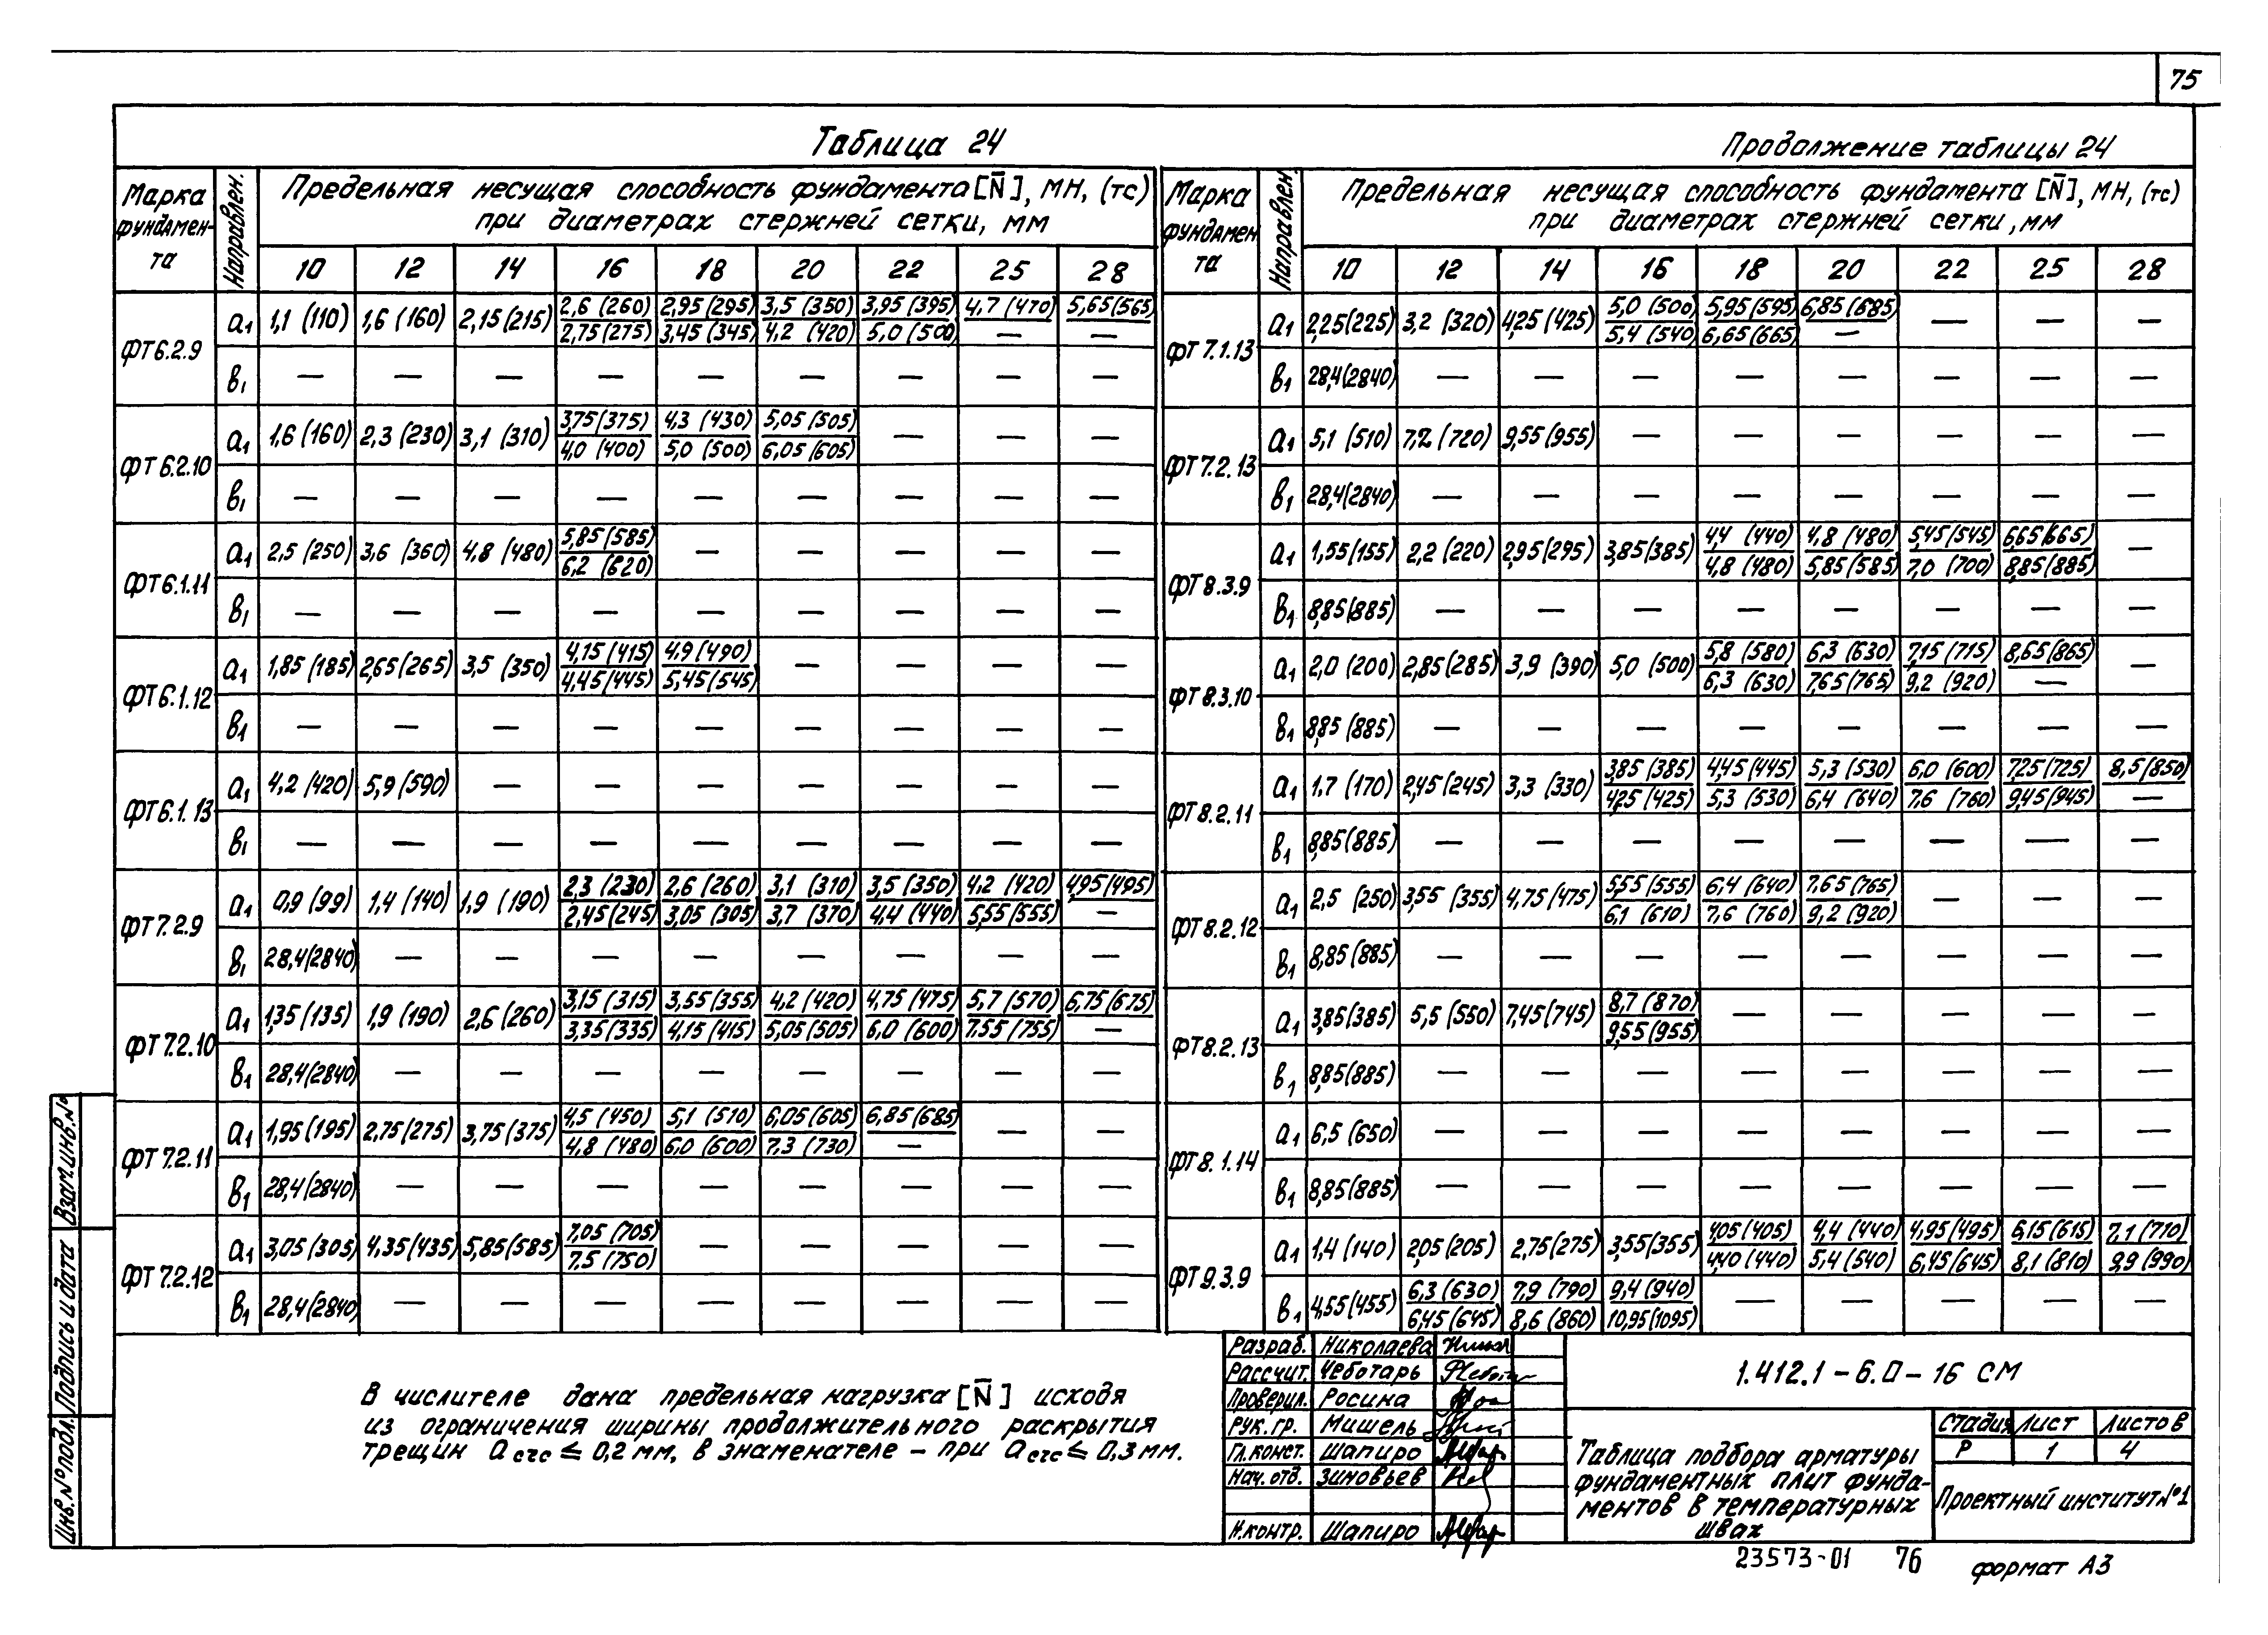 75
Таблица 24
Марка фундамента | Направлен. | Предельная несущая способность фундамента [N̄], МН, (тс) при диаметрах стержней сетки, мм
10 | 12 | 14 | 16 | 18 | 20 | 22 | 25 | 28
ФТ6.2.9 | a₁ | 1,1 (110) | 1,6 (160) | 2,15 (215) | 2,6 (260) / 2,75 (275) | 2,95 (295) / 3,45 (345) | 3,5 (350) / 4,2 (420) | 3,95 (395) / 5,0 (500) | 4,7 (470) / — | 5,65 (565) / —
в₁ | — | — | — | — | — | — | — | — | —
ФТ6.2.10 | a₁ | 1,6 (160) | 2,3 (230) | 3,1 (310) | 3,75 (375) / 4,0 (400) | 4,3 (430) / 5,0 (500) | 5,05 (505) / 6,05 (605) | — | — | —
в₁ | — | — | — | — | — | — | — | — | —
ФТ6.1.11 | a₁ | 2,5 (250) | 3,6 (360) | 4,8 (480) | 5,85 (585) / 6,2 (620) | — | — | — | — | —
в₁ | — | — | — | — | — | — | — | — | —
ФТ6.1.12 | a₁ | 1,85 (185) | 2,65 (265) | 3,5 (350) | 4,15 (415) / 4,45 (445) | 4,9 (490) / 5,45 (545) | — | — | — | —
в₁ | — | — | — | — | — | — | — | — | —
ФТ6.1.13 | a₁ | 4,2 (420) | 5,9 (590) | — | — | — | — | — | — | —
в₁ | — | — | — | — | — | — | — | — | —
ФТ7.2.9 | a₁ | 0,9 (99) | 1,4 (140) | 1,9 (190) | 2,3 (230) / 2,45 (245) | 2,6 (260) / 3,05 (305) | 3,1 (310) / 3,7 (370) | 3,5 (350) / 4,4 (440) | 4,2 (420) / 5,55 (555) | 4,95 (495) / —
в₁ | 28,4 (2840) | — | — | — | — | — | — | — | —
ФТ7.2.10 | a₁ | 1,35 (135) | 1,9 (190) | 2,6 (260) | 3,15 (315) / 3,35 (335) | 3,55 (355) / 4,15 (415) | 4,2 (420) / 5,05 (505) | 4,75 (475) / 6,0 (600) | 5,7 (570) / 7,55 (755) | 6,75 (675) / —
в₁ | 28,4 (2840) | — | — | — | — | — | — | — | —
ФТ7.2.11 | a₁ | 1,95 (195) | 2,75 (275) | 3,75 (375) | 4,5 (450) / 4,8 (480) | 5,1 (510) / 6,0 (600) | 6,05 (605) / 7,3 (730) | 6,85 (685) / — | — | —
в₁ | 28,4 (2840) | — | — | — | — | — | — | — | —
ФТ7.2.12 | a₁ | 3,05 (305) | 4,35 (435) | 5,85 (585) | 7,05 (705) / 7,5 (750) | — | — | — | — | —
в₁ | 28,4 (2840) | — | — | — | — | — | — | — | —
Продолжение таблицы 24
Марка фундамента | Направлен. | Предельная несущая способность фундамента [N̄], МН, (тс) при диаметрах стержней сетки, мм
10 | 12 | 14 | 16 | 18 | 20 | 22 | 25 | 28
ФТ7.1.13 | a₁ | 2,25 (225) | 3,2 (320) | 4,25 (425) | 5,0 (500) / 5,4 (540) | 5,95 (595) / 6,65 (665) | 6,85 (685) / — | — | — | —
в₁ | 28,4 (2840) | — | — | — | — | — | — | — | —
ФТ7.2.13 | a₁ | 5,1 (510) | 7,2 (720) | 9,55 (955) | — | — | — | — | — | —
в₁ | 28,4 (2840) | — | — | — | — | — | — | — | —
ФТ8.3.9 | a₁ | 1,55 (155) | 2,2 (220) | 2,95 (295) | 3,85 (385) | 4,4 (440) / 4,8 (480) | 4,8 (480) / 5,85 (585) | 5,45 (545) / 7,0 (700) | 6,65 (665) / 8,85 (885) | —
в₁ | 8,85 (885) | — | — | — | — | — | — | — | —
ФТ8.3.10 | a₁ | 2,0 (200) | 2,85 (285) | 3,9 (390) | 5,0 (500) | 5,8 (580) / 6,3 (630) | 6,3 (630) / 7,65 (765) | 7,15 (715) / 9,2 (920) | 8,65 (865) / — | —
в₁ | 8,85 (885) | — | — | — | — | — | — | — | —
ФТ8.2.11 | a₁ | 1,7 (170) | 2,45 (245) | 3,3 (330) | 3,85 (385) / 4,25 (425) | 4,45 (445) / 5,3 (530) | 5,3 (530) / 6,4 (640) | 6,0 (600) / 7,6 (760) | 7,25 (725) / 9,45 (945) | 8,5 (850) / —
в₁ | 8,85 (885) | — | — | — | — | — | — | — | —
ФТ8.2.12 | a₁ | 2,5 (250) | 3,55 (355) | 4,75 (475) | 5,55 (555) / 6,1 (610) | 6,4 (640) / 7,6 (760) | 7,65 (765) / 9,2 (920) | — | — | —
в₁ | 8,85 (885) | — | — | — | — | — | — | — | —
ФТ8.2.13 | a₁ | 3,85 (385) | 5,5 (550) | 7,45 (745) | 8,7 (870) / 9,55 (955) | — | — | — | — | —
в₁ | 8,85 (885) | — | — | — | — | — | — | — | —
ФТ8.1.14 | a₁ | 6,5 (650) | — | — | — | — | — | — | — | —
в₁ | 8,85 (885) | — | — | — | — | — | — | — | —
ФТ9.3.9 | a₁ | 1,4 (140) | 2,05 (205) | 2,75 (275) | 3,55 (355) | 4,05 (405) / 4,40 (440) | 4,4 (440) / 5,4 (540) | 4,95 (495) / 6,45 (645) | 6,15 (615) / 8,1 (810) | 7,1 (710) / 9,9 (990)
в₁ | 4,55 (455) | 6,3 (630) / 6,45 (645) | 7,9 (790) / 8,6 (860) | 9,4 (940) / 10,95 (1095) | — | — | — | — | —
В числителе дана предельная нагрузка [N̄] исходя
из ограничения ширины продолжительного раскрытия
трещин a crc ≤ 0,2 мм, в знаменателе – при a crc ≤ 0,3 мм.
Разраб. Николаева
Рассчит. Чеботарь
Проверил. Росина
Рук. гр. Мишель
Гл. конст. Шапиро
Нач. отд. Зиновьев
Н.контр. Шапиро
1.412.1 – 6.0 – 16 СМ
Таблица подбора арматуры
фундаментных плит фунда-
ментов в температурных
швах
Стадия Лист Листов
Р 1 4
Проектный институт №1
23573-01 76
формат А3
Инв. № подл. Подпись и дата Взам. инв. №